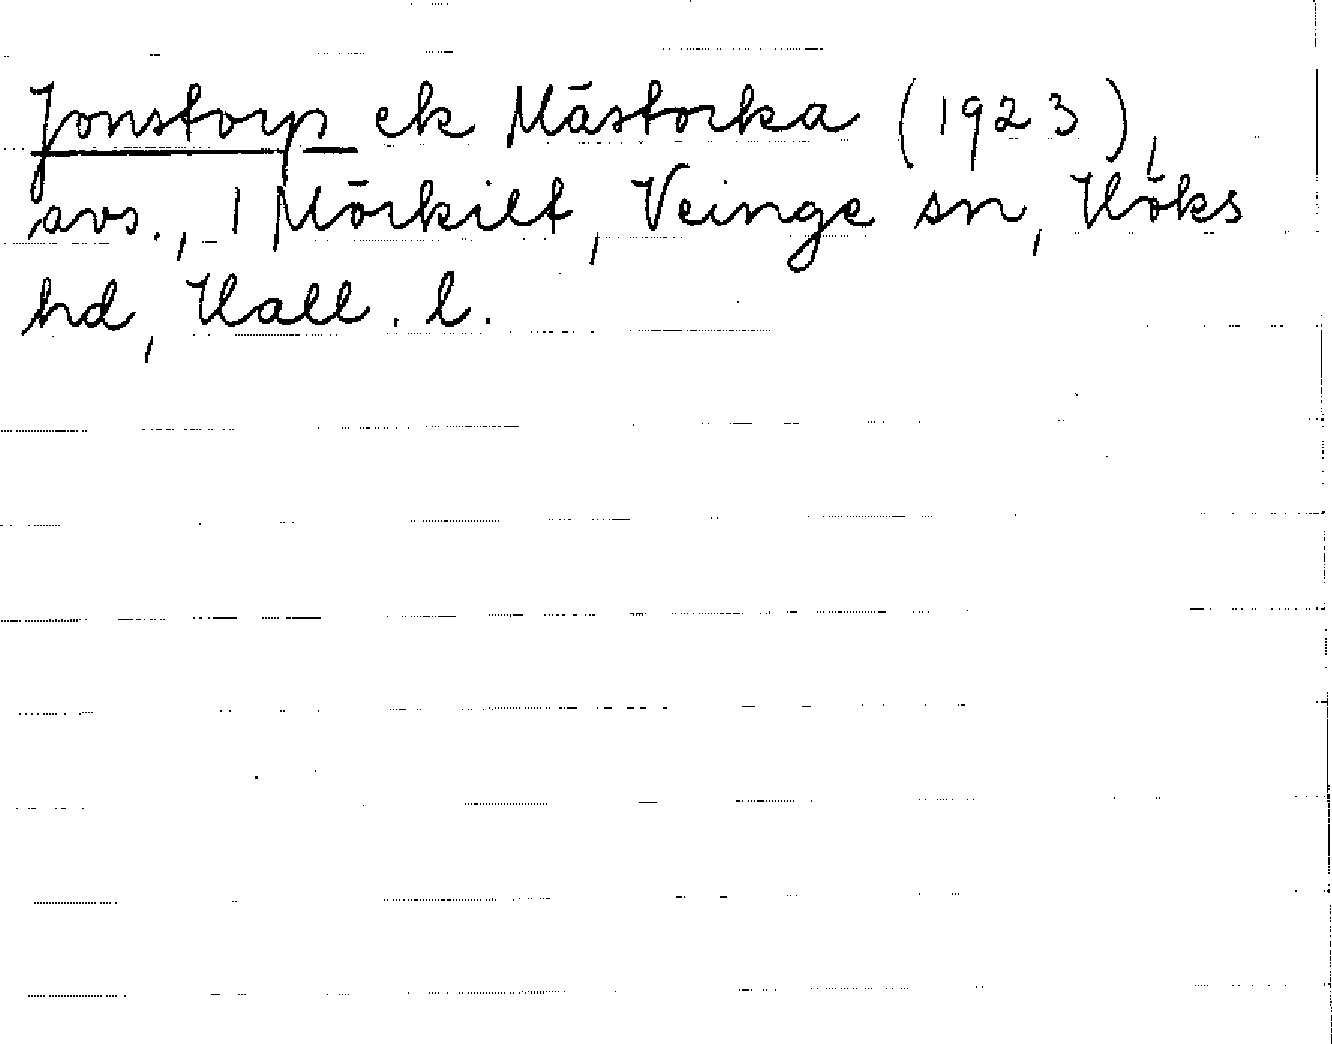 Jonstorp ek Mästocka (1923),
avs., 1 Mörkilt, Veinge sn, Höks
hd, Hall. l.